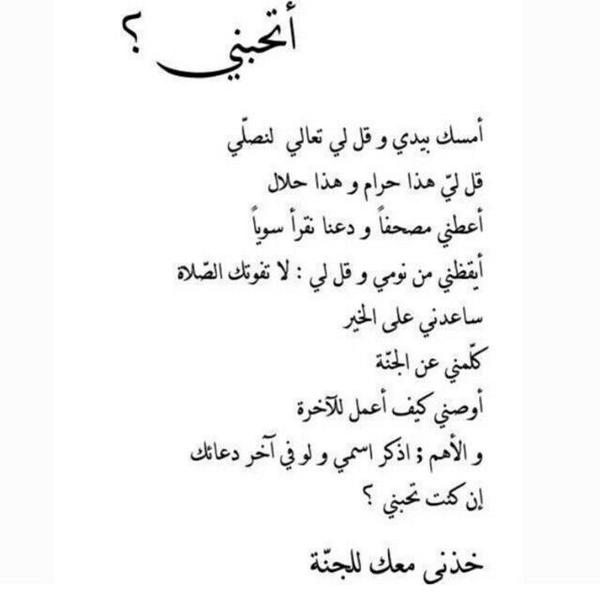 أتحبني ؟
أمسك بيدي و قل لي تعالي لنصلّي
قل ليّ هذا حرام و هذا حلال
أعطني مصحفاً و دعنا نقرأ سوياً
أيقظني من نومي و قل لي : لا تفوتك الصّلاة
ساعدني على الخير
كلّمني عن الجنّة
أوصني كيف أعمل للآخرة
و الأهم ; اذكر اسمي و لو في آخر دعائك
إن كنت تحبني ؟
خذنى معك للجنّة